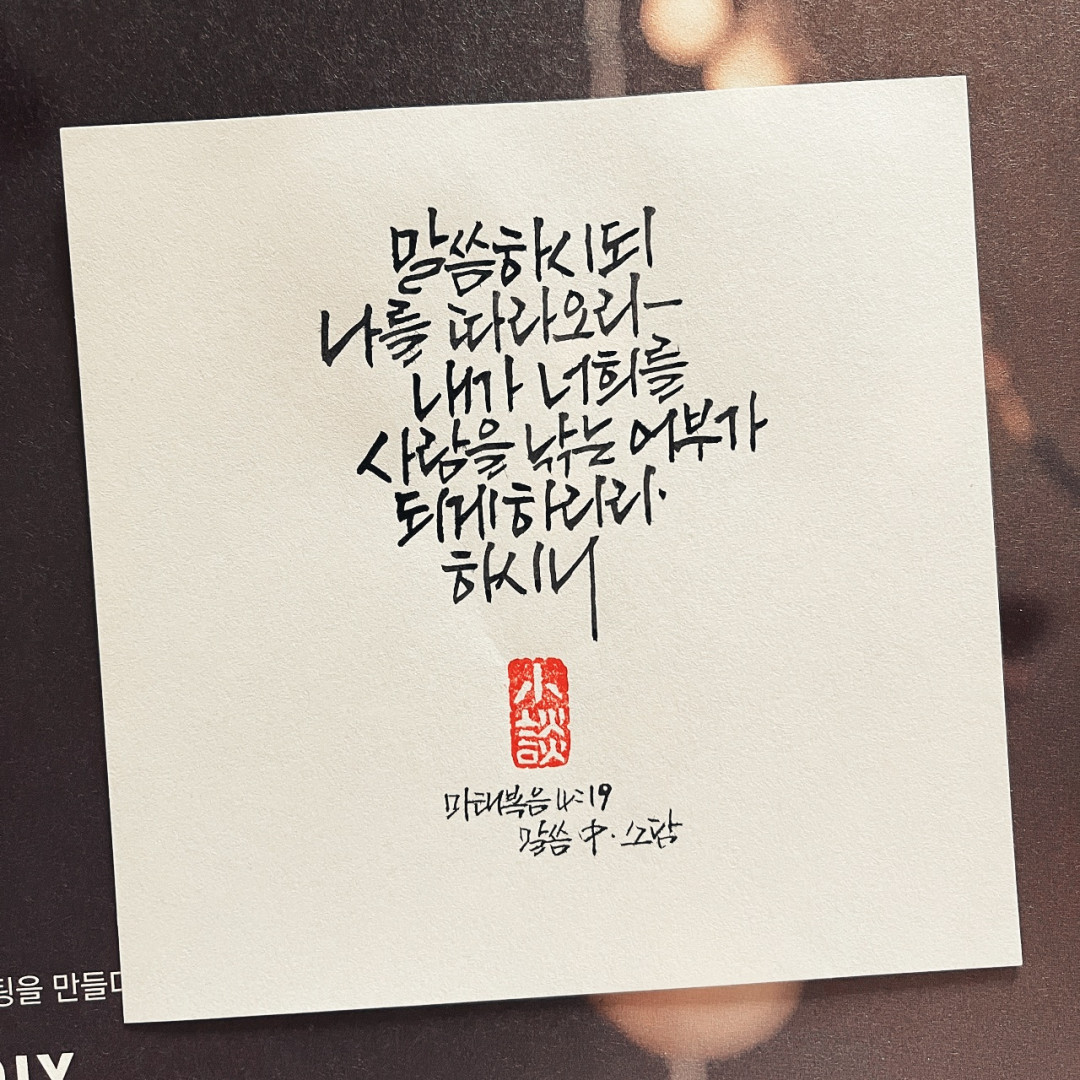 말씀하시되
나를 따라오라-
내가 너희를
사람을 낚는 어부가
되게하리라.
하시니
小談
마태복음 4:19
말씀 中. 소담
팅을 만들다
DIY